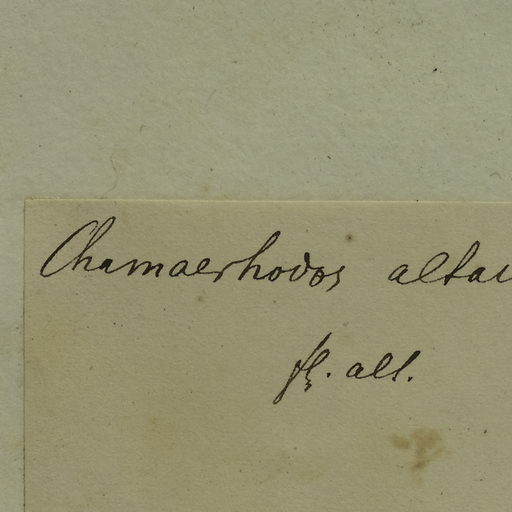 Chamaerhodos altai
fl. alt.